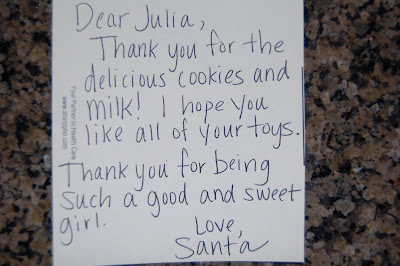 Dear Julia,
Thank you for the
delicious cookies and
milk! I hope you
like all of your toys.
Thank you for being
such a good and sweet
girl.
Love,
Santa
Your Partner in Health Care